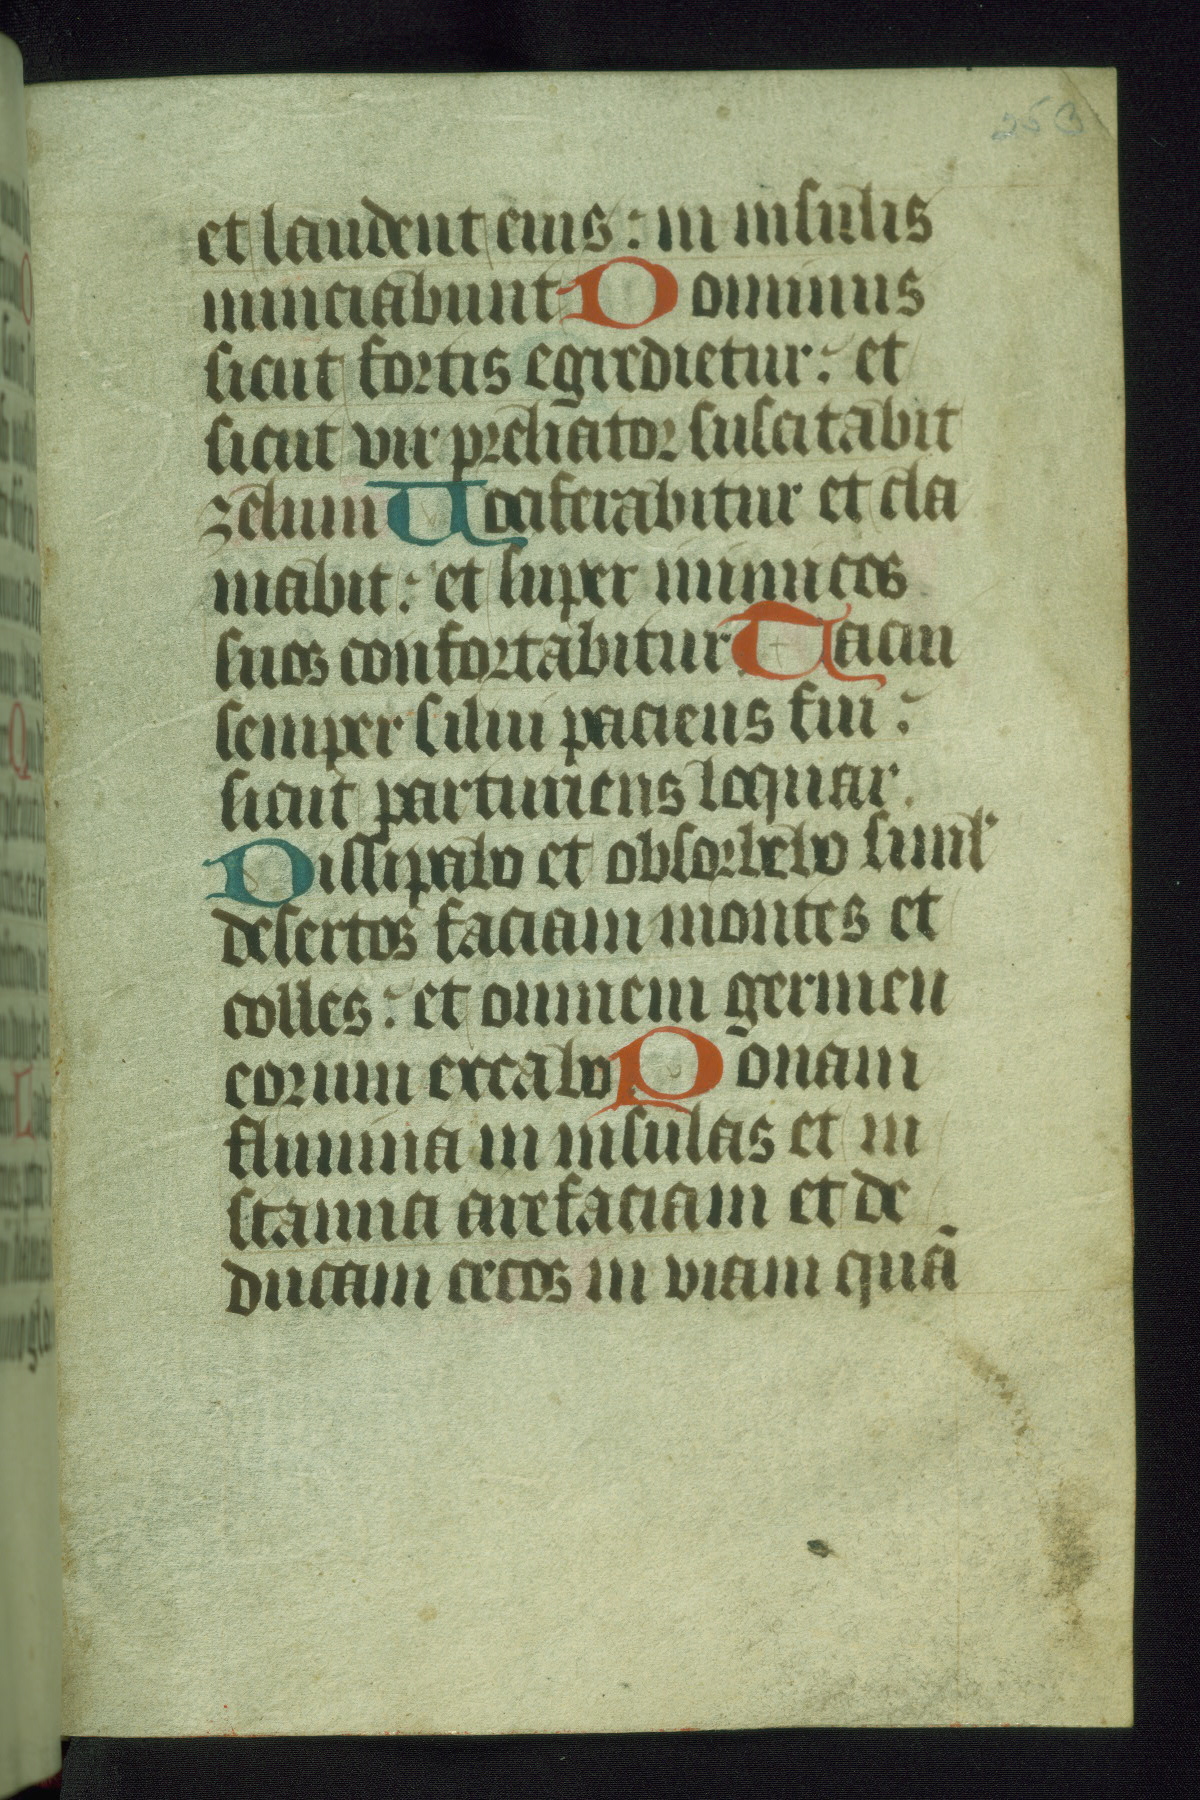 253
et laudem eius : in insulis
nunciabunt Dominus
sicut fortis egredietur : et
sicut vir preliator suscitabit
zelum Vociferabitur et cla
mabit : et super inimicos
suos confortabitur Tacui
semper silui paciens fui :
sicut parturiens loquar .
Dissipabo et obsorbebo simul
desertos faciam montes et
colles : et omnem germen
eorum exicabo Ponam
flumina in insulas et in
stanna arefaciam et de
ducam cecos in viam quā